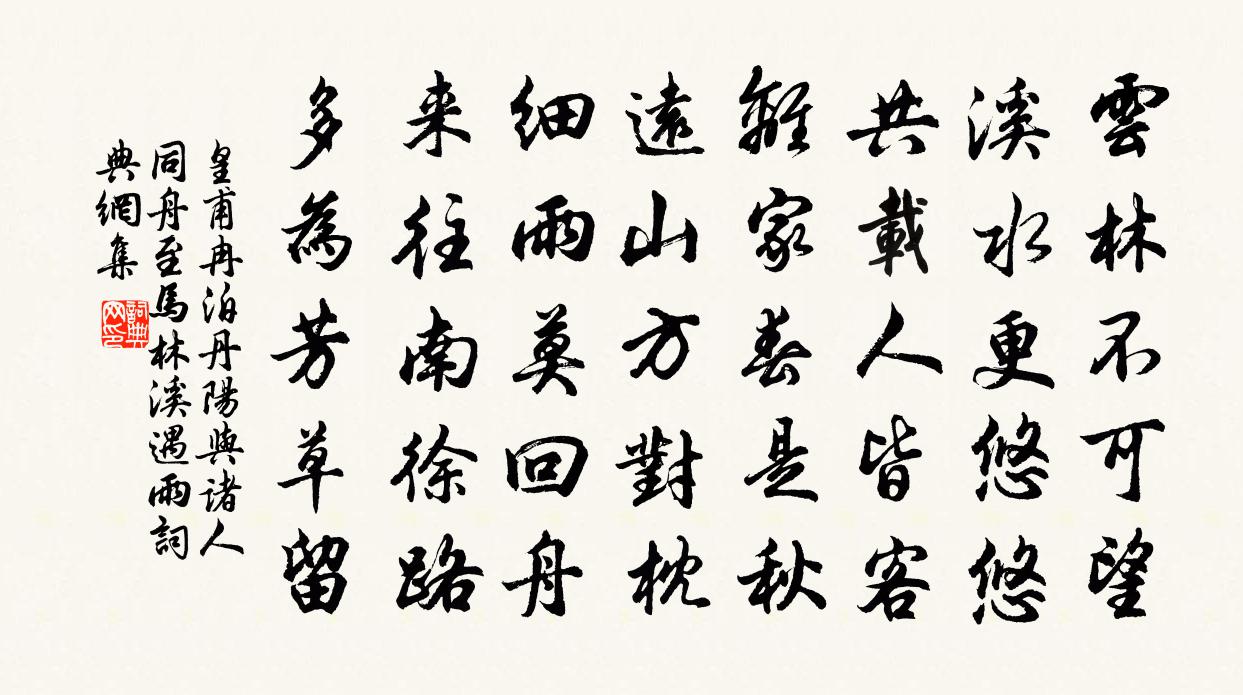 雲林不可望
溪水更悠悠
共載人皆客
離家春是秋
遠山方對枕
細雨莫回舟
来往南徐路
多為芳草留
皇甫冉泊丹陽與諸人
同舟至馬林溪遇雨詞
典網集
詞典
网印